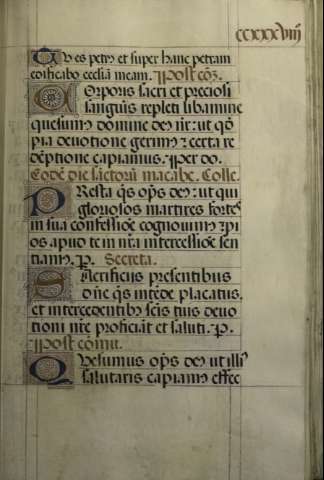 ccxxxviiij
Tu es petrus et super hanc petram
edificabo eccliā meam. Post cōȝ.
Corporis sacri et preciosi
sanguīs repleti libamine
quesum⁹ domine deus nr̄: ut qd̄
pia deuotione gerim⁹ : certa re
dēptione capiamus. Per do.
Eodē die sactorū macabe. Colle.
Presta q̄s op̄s deus : ut qui
gloriosos martires fortes
in sua confessiōe cognouim⁹ : pi
os apud te in nr̄a intercessiōe sen
tiam⁹. P. Secreta.
Sacrificiis presentibus
dn̄e q̄s intēde placatus.
et intercedentib⁹ sc̄is tuis deuo
tioni nr̄e proficiāt et saluti. P.
Post cōmu.
Quesumus op̄s deus ut illi⁹
salutaris capiam⁹ effec